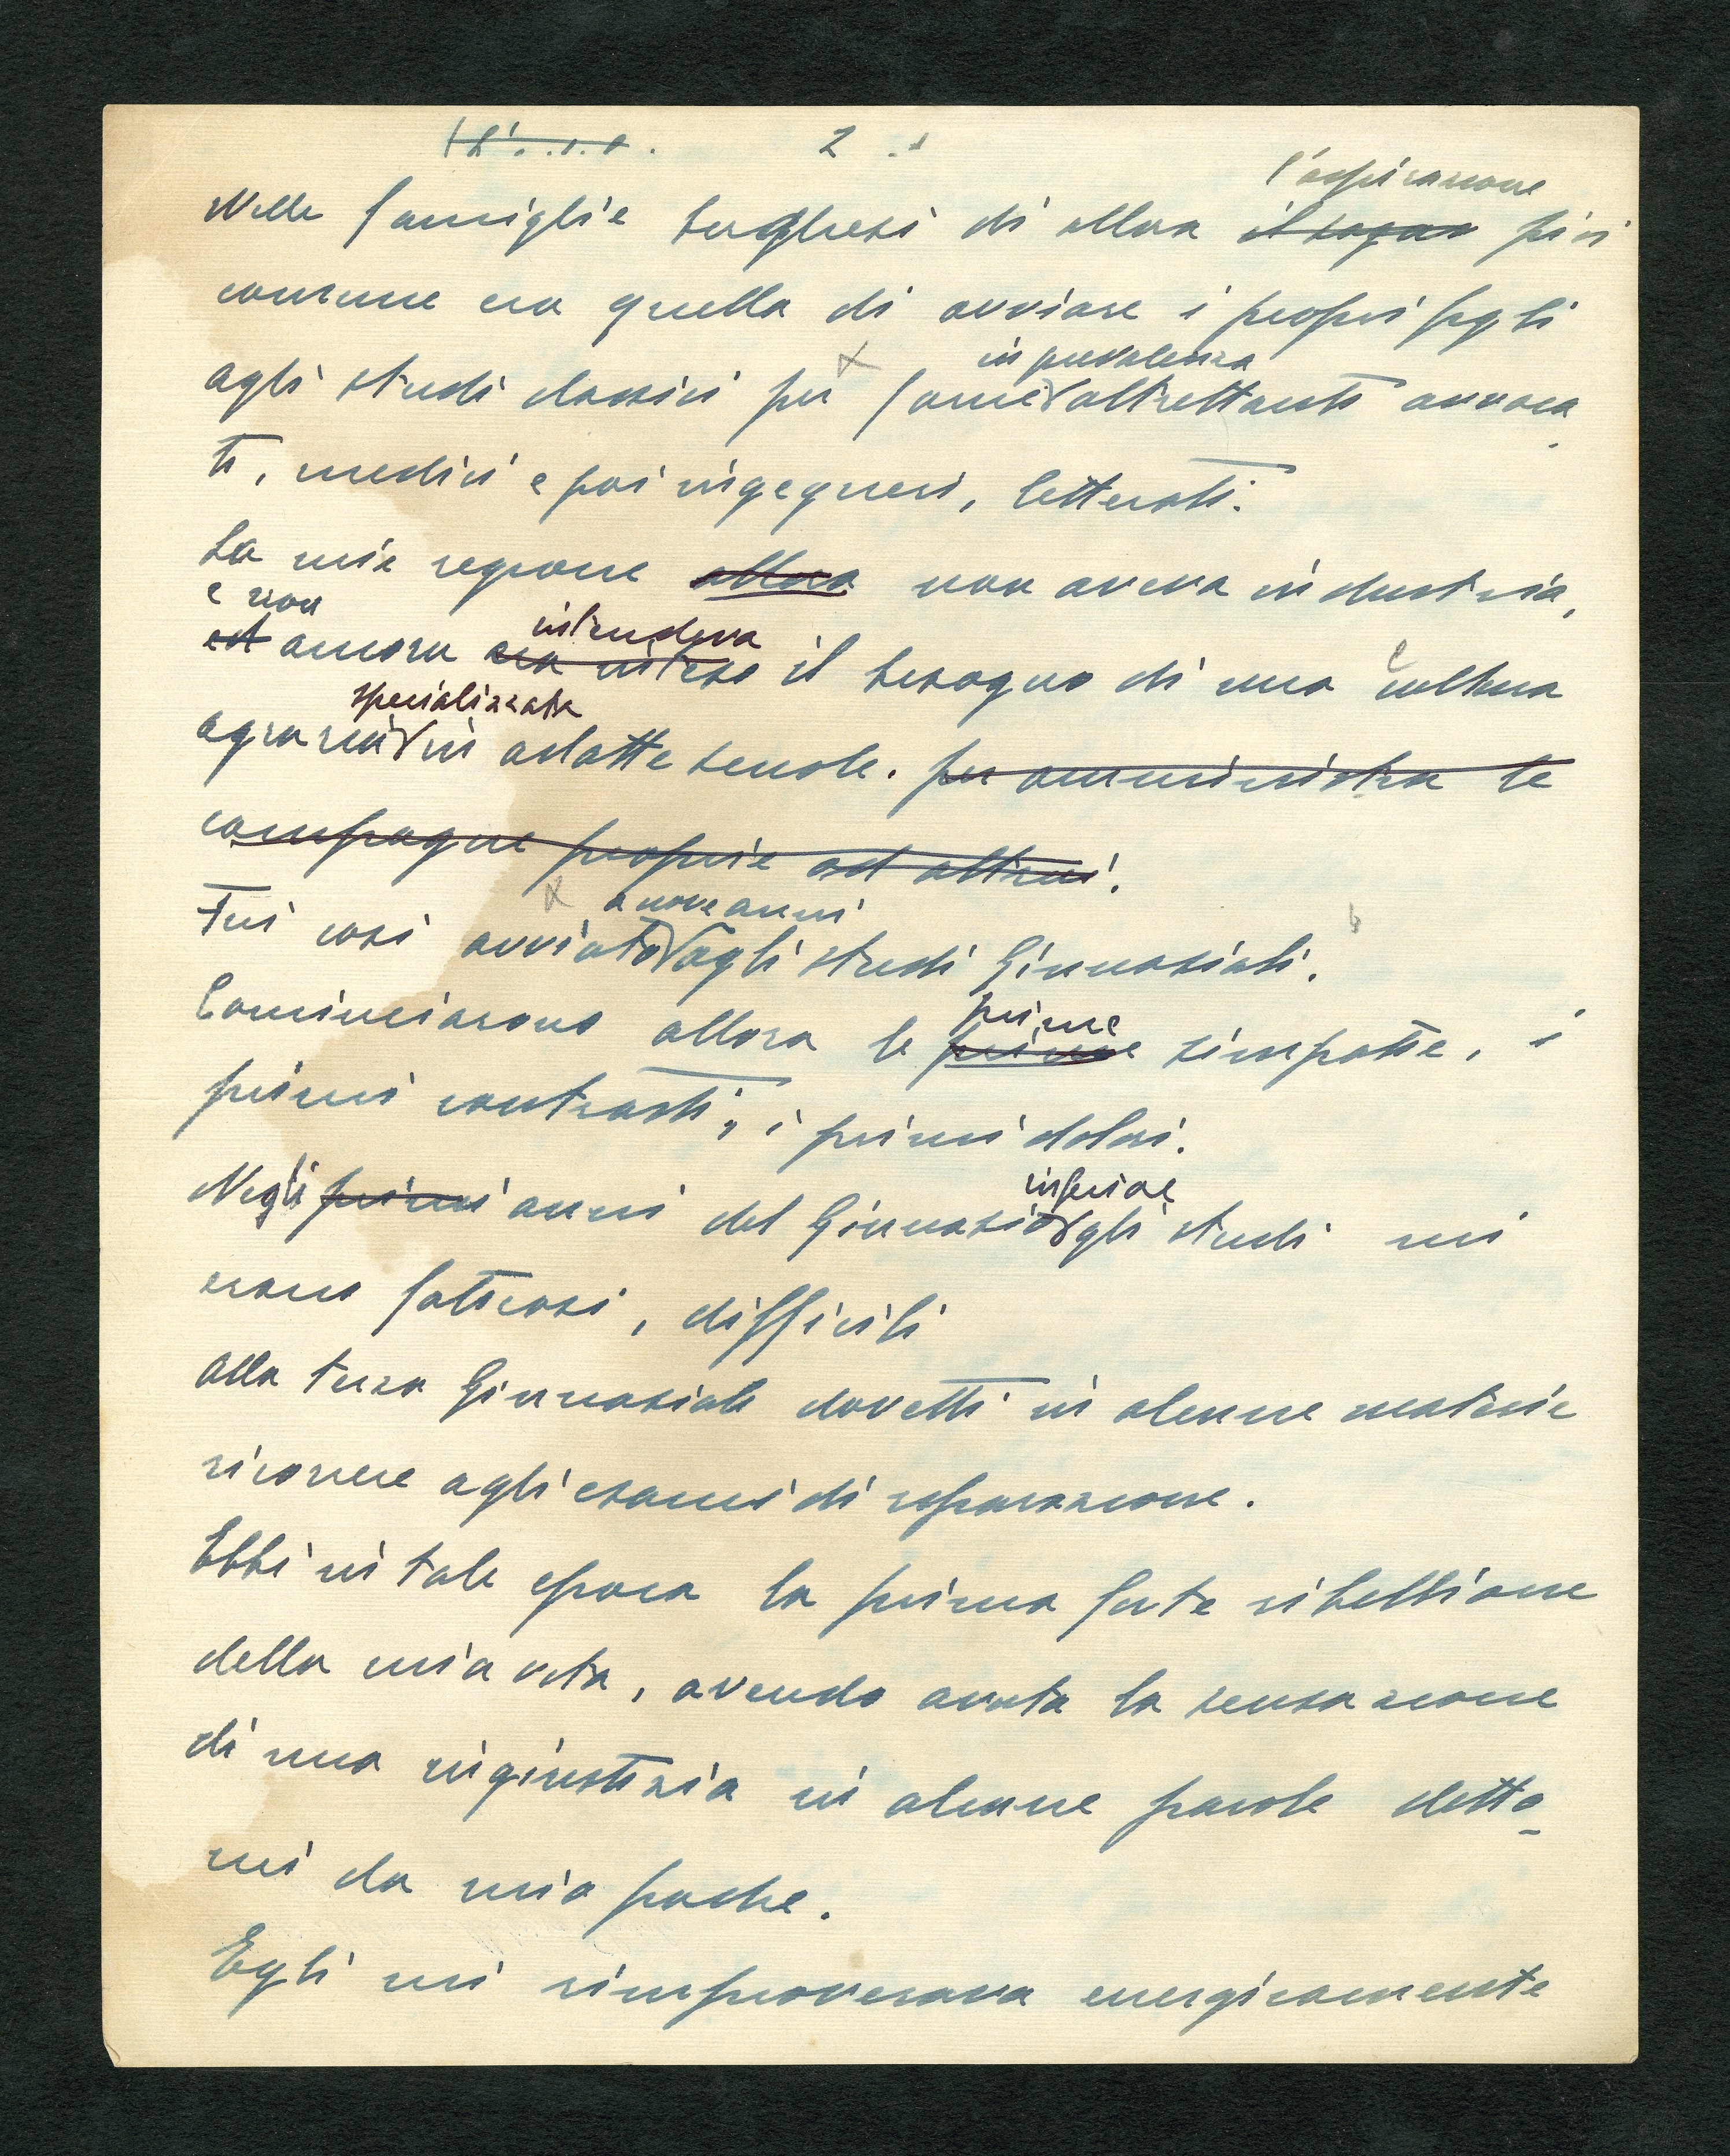 2
l'aspirazione
Nelle famiglie borghesi di allora il sogno più
comune era quella di avviare i propri figli
in prevalenza
agli studi classici per farne altrettanti avvoca
ti, medici e poi ingegneri, letterati.
La mia regione allora non aveva industria,
e non
intendeva
ed ancora era inteso il bisogno di una cultura
specializzata
agraria in adatte scuole. per amministrar le
campagne proprie od altrui.
a nove anni
Fui così avviato agli studi Ginnasiali.
prime
Cominciarono allora le prime simpatie, i
primi contrasti, i primi dolori.
inferiore
Negli primi anni del Ginnasio gli studi mi
erano faticosi, difficili
Alla terza Ginnasiale dovetti in alcune materie
ricorrere agli esami di reparazione.
Ebbi in tale epoca la prima forte ribellione
della mia vita, avendo avuta la sensazione
di una ingiustizia in alcune parole detto
mi da mio padre.
Egli mi rimproverava energicamente